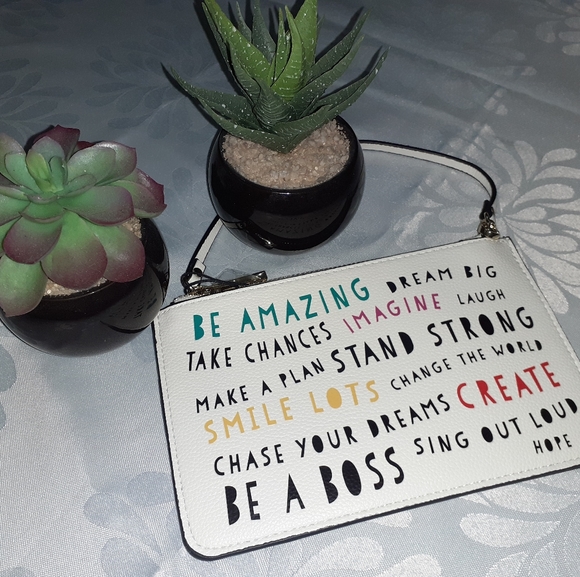 BE AMAZING DREAM BIG
TAKE CHANCES IMAGINE LAUGH
MAKE A PLAN STAND STRONG
SMILE LOTS CHANGE THE WORLD
CHASE YOUR DREAMS CREATE
BE A BOSS SING OUT LOUD
HOPE